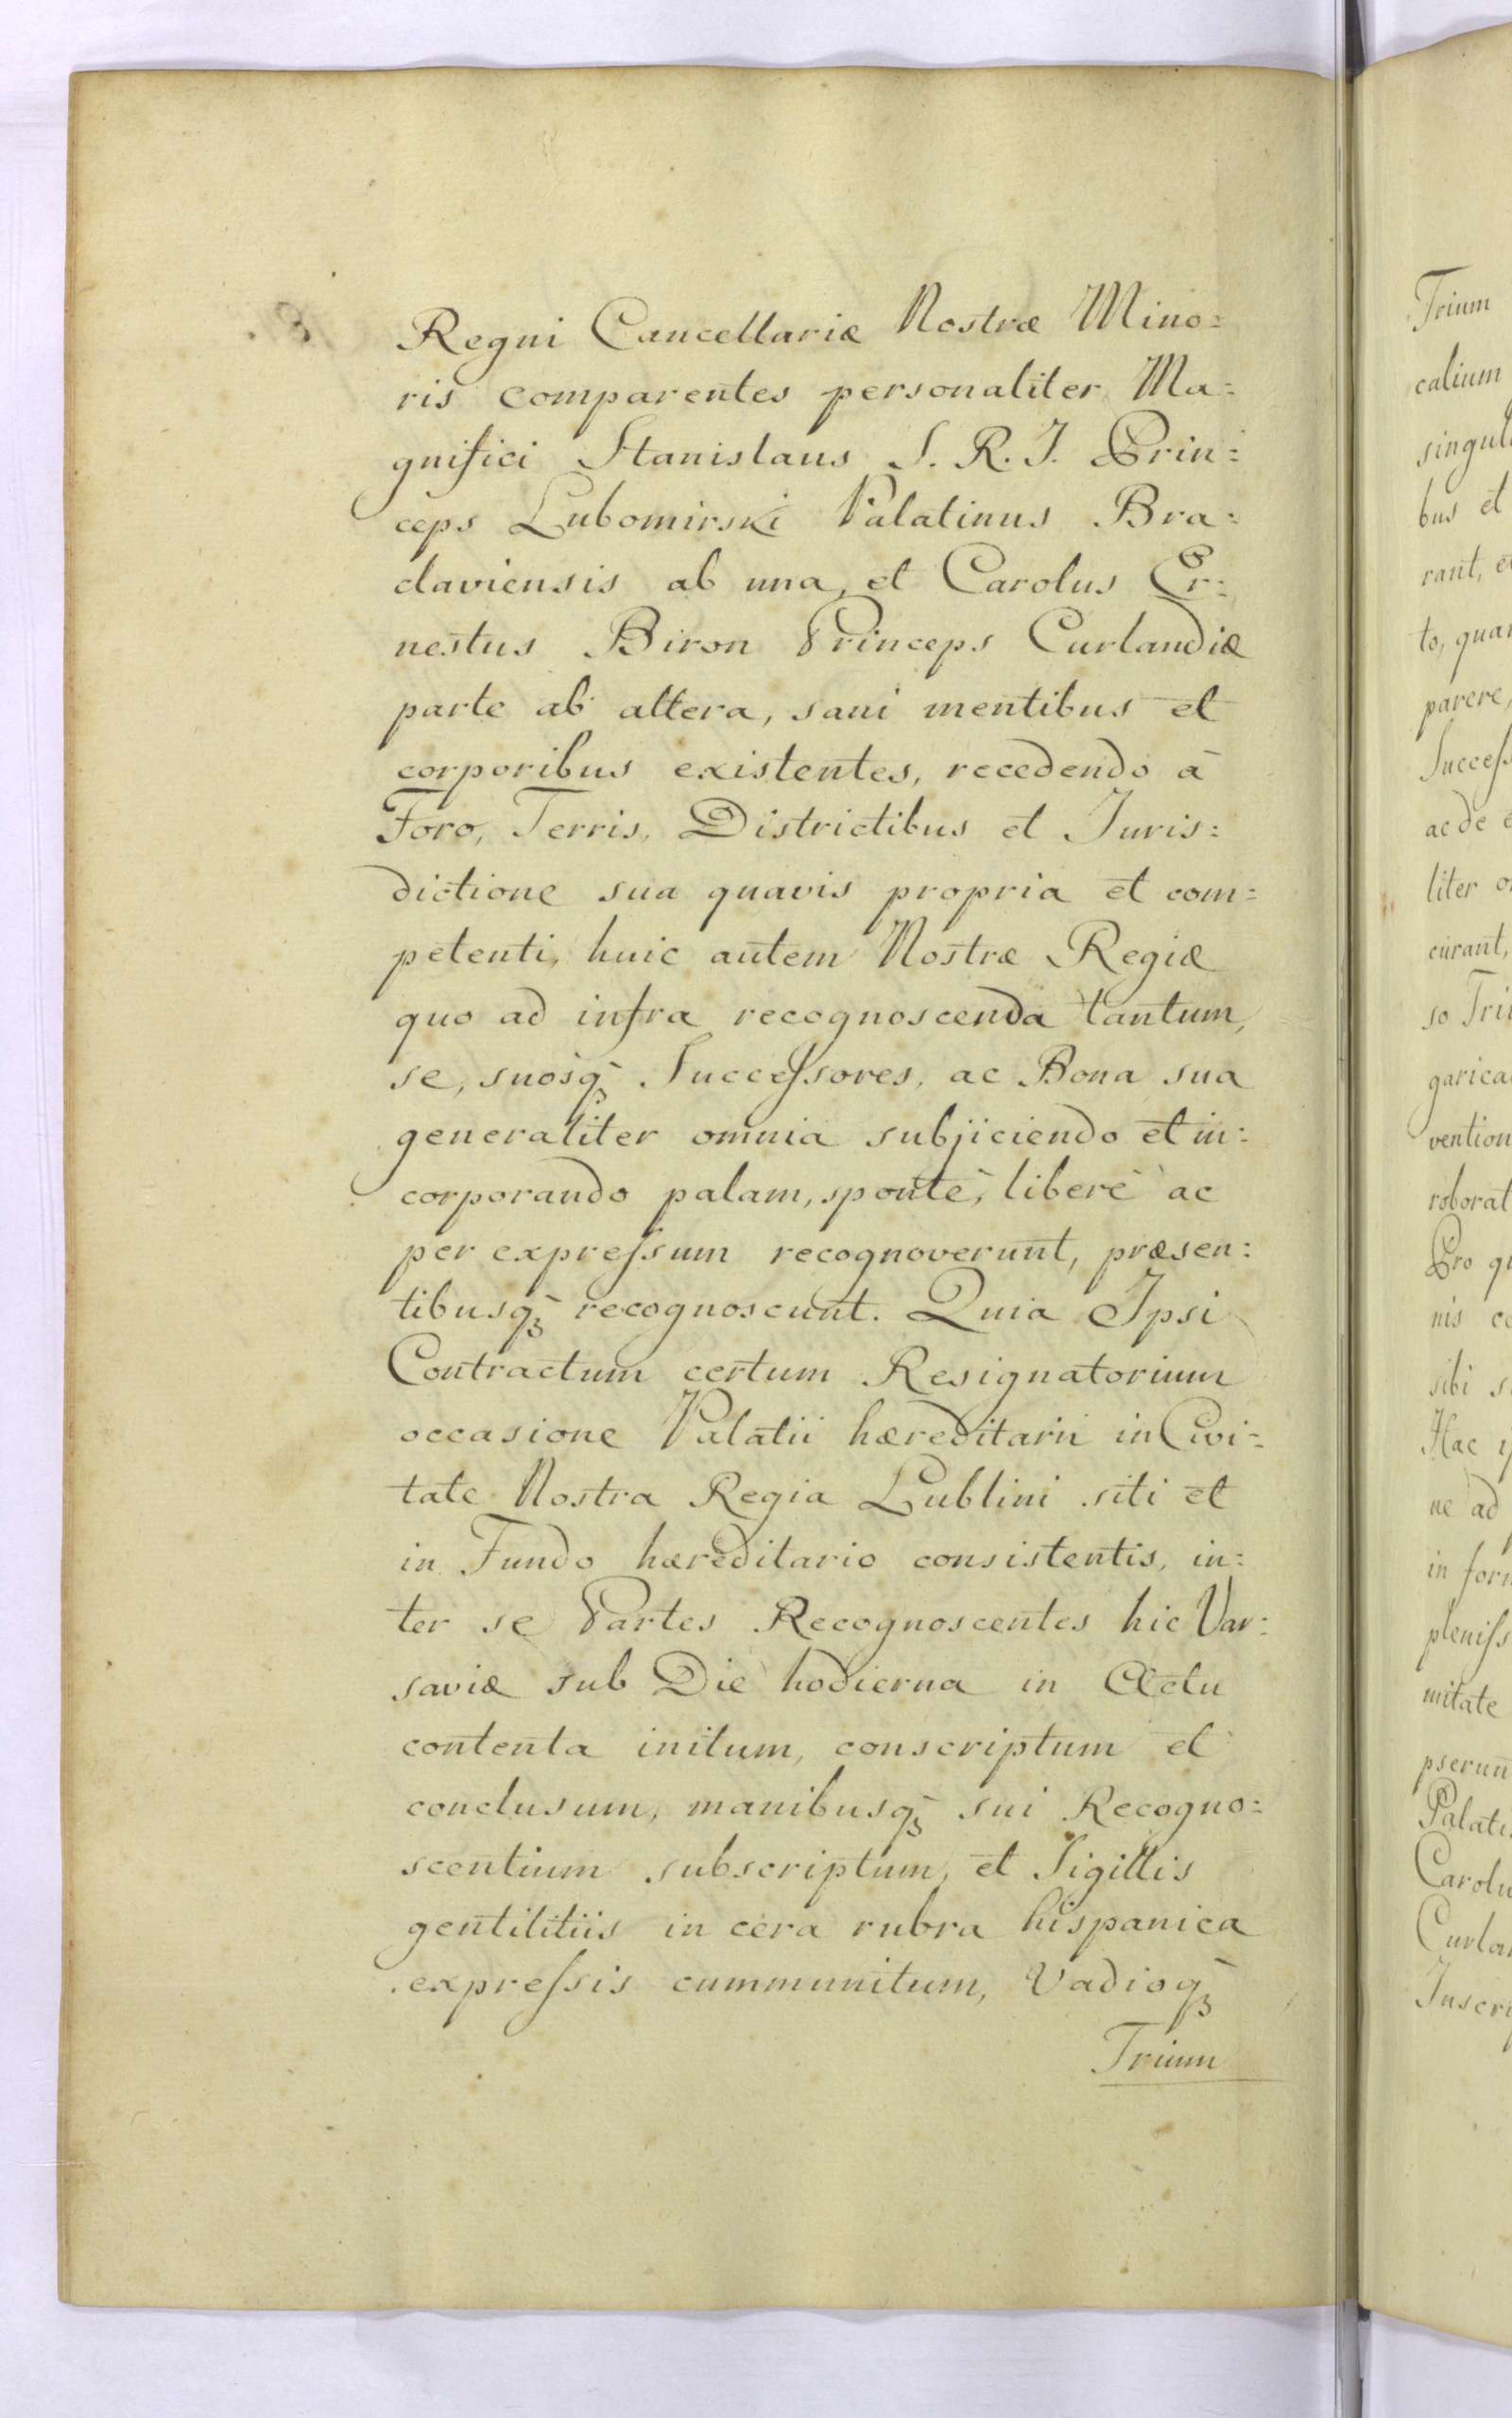 Regni Cancellariæ Nostræ Mino:
ris comparentes personaliter Ma:
gnifici Stanislaus S. R. J. Prin:
ceps Lubomirski Palatinus Bra:
claviensis ab una, et Carolus Er:
nestus Biron Princeps Curlandiæ
parte ab altera, sani mentibus et
corporibus existentes, recedendo à
Foro, Terris, Districtibus et Juris:
dictione sua quavis propria et com:
petenti, huic autem Nostræ Regiæ
quo ad infra recognoscenda tantum,
se, suosq̃ Succeſsores, ac Bona sua
generaliter omnia subjiciendo et in:
corporando palam, spontè, liberè ac
per expreſsum recognoverunt, præsen:
tibusq̃ recognoscunt. Quia Ipsi
Contractum certum Resignatorium
occasione Palatii hæreditarii in Civi:
tate Nostra Regia Lublini siti et
in Fundo hæreditario consistentis, in:
ter se Partes Recognoscentes hic Var:
saviæ sub Die hodierna in Actu
contenta initum, conscriptum et
conclusum, manibusq̃ sui Recogno:
scentium subscriptum, et Sigillis
gentilitiis in cera rubra hispanica
expreſsis cummunitum, Vadioq̃
Trium
Trium
calium
singul
bus et
rant, e
to, quar
parere,
Succeſs
ac de e
liter o
curant,
so Tri
garica
vention
roborat
Pro qu
nis ce
sibi s
Hac
ne ad
in for
pleniſs
mitate
pserun
Palati
Carolu
Curla
Inscri